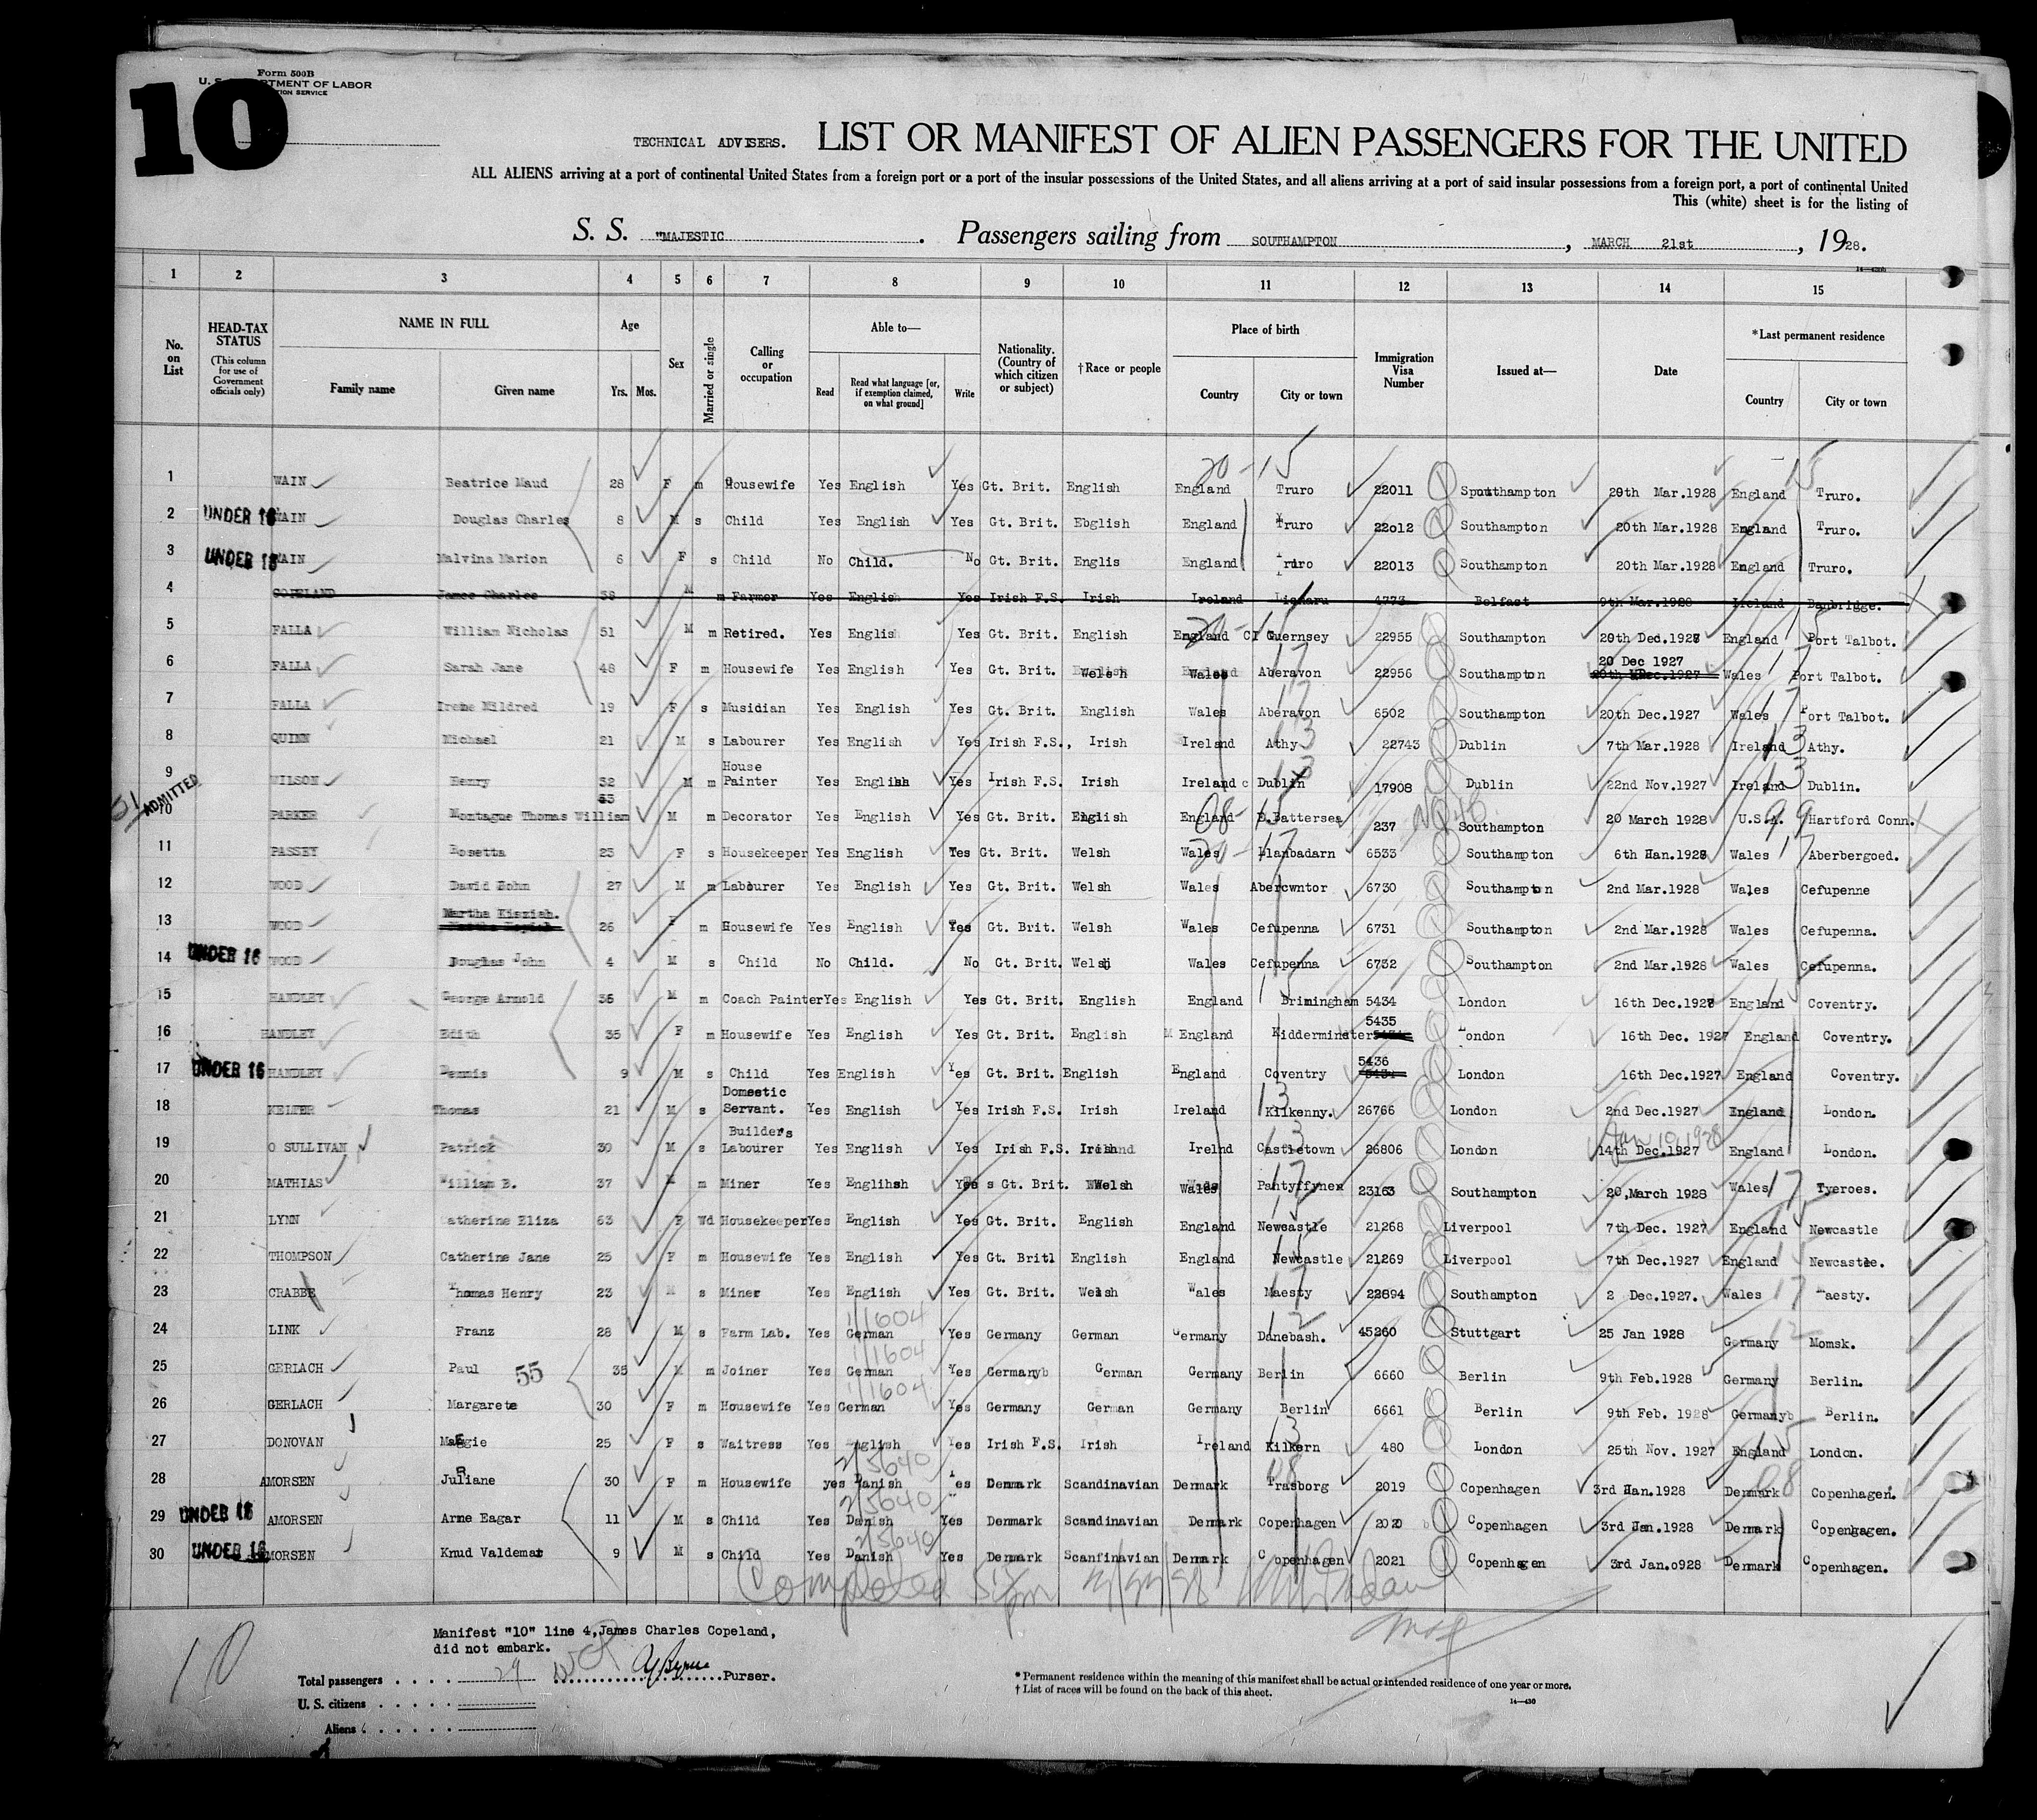 10
Form 500B
U. S. DEPARTMENT OF LABOR
TECHNICAL ADVISERS. LIST OR MANIFEST OF ALIEN PASSENGERS FOR THE UNITED
ALL ALIENS arriving at a port of continental United States from a foreign port or a port of the insular possessions of the United States, and all aliens arriving at a port of said insular possessions from a foreign port, a port of continental United
This (white) sheet is for the listing of
S. S. "MAJESTIC . Passengers sailing from SOUTHAMPTON , MARCH 21st , 1928.
1 2 3 4 5 6 7 8 9 10 11 12 13 14 15
No. on List HEAD-TAX STATUS (This column for use of Government officials only) NAME IN FULL Family name Given name Age Yrs. Mos. Sex Married or single Calling or occupation Able to— Read Read what language [or, if exemption claimed, on what ground] Write Nationality. (Country of which citizen or subject) †Race or people Place of birth Country City or town Immigration Visa Number Issued at— Date *Last permanent residence Country City or town
20-15 15
1 WAIN Beatrice Maud 28 F m Housewife Yes English Yes Gt. Brit. English England Truro 22011 Southampton 20th Mar.1928 England Truro.
2 UNDER 16 WAIN Douglas Charles 8 M s Child Yes English Yes Gt. Brit. Ebglish England Truro 22o12 Southampton 20th Mar.1928 England Truro.
3 UNDER 16 WAIN Malvina Marion 6 F s Child No Child. No Gt. Brit. Englis England Truro 22013 Southampton 20th Mar.1928 England Truro.
4 COPELAND James Charles 38 M m Farmer Yes English Yes Irish F.S. Irish Ireland 4773 Belfast 9th Mar.1928 Ireland Banbridge.
5 FALLA William Nicholas 51 M m Retired. Yes Englis Yes Gt. Brit. English England CI Guernsey 22955 Southampton 20th Dec.1927 England Port Talbot.
6 FALLA Sarah Jane 48 F m Housewife Yes English Yes Gt. Brit. Welsh Wales Aberavon 22956 Southampton 20 Dec 1927 Wales Port Talbot.
7 FALLA Irene Mildred 19 F s Musidian Yes English Yes Gt. Brit. English Wales Aberavon 6502 Southampton 20th Dec.1927 Wales Port Talbot.
8 QUINN Michael 21 M s Labourer Yes English Yes Irish F.S., Irish Ireland Athy 22743 Dublin 7th Mar.1928 Ireland Athy.
9 WILSON Henry 32 M m House Painter Yes English Yes Irish F.S. Irish Ireland c Dublin 17908 Dublin 22nd Nov.1927 Ireland Dublin.
10 ADMITTED PARKER Montague Thomas William 53 M m Decorator Yes English Yes Gt. Brit. English England Battersea 237 Southampton 20 March 1928 U.S.A. Hartford Conn.
11 PASSEY Rosetta 23 F s Housekeeper Yes English Yes Gt. Brit. Welsh Wales Llanbadarn 6533 Southampton 6th Han.1928 Wales Aberbergoed.
12 WOOD David John 27 M m Labourer Yes English Yes Gt. Brit. Welsh Wales Abercwntor 6730 Southampton 2nd Mar.1928 Wales Cefupenne
13 WOOD Martha Kisziah. 26 F m Housewife Yes English Yes Gt. Brit. Welsh Wales Cefupenna 6731 Southampton 2nd Mar.1928 Wales Cefupenna.
14 UNDER 16 WOOD Douglas John 4 M s Child No Child. No Gt. Brit. Welsh Wales Cefupenna 6732 Southampton 2nd Mar.1928 Wales Cefupenna.
15 HANDLEY George Arnold 36 M m Coach Painter Yes English Yes Gt. Brit. English England Brimingham 5434 London 16th Dec.1927 England Coventry.
16 HANDLEY Edith 35 F m Housewife Yes English Yes Gt. Brit. English England Kidderminster 5435 London 16th Dec. 1927 England Coventry.
17 UNDER 16 HANDLEY Dennis 9 M s Child Yes English Yes Gt. Brit. English England Coventry 5436 London 16th Dec.1927 England Coventry.
18 Thomas 21 M s Domestic Servant. Yes English Yes Irish F.S. Irish Ireland Kilkenny. 26766 London 2nd Dec.1927 England London.
19 O SULLIVAN Patrick 30 M s Builders Labourer Yes English Yes Irish F.S. Irish Irelnd Castletown 26806 London 14th Dec.1927 Jan 10,1928 England London.
20 MATHIAS William B. 37 M m Miner Yes English Yes Gt. Brit. Welsh Wales Pantyffynen 23163 Southampton 20,March 1928 Wales Tyeroes.
21 LYNN Catherine Eliza 63 F Wd Housekeeper Yes English Yes Gt. Brit. English England Newcastle 21268 Liverpool 7th Dec. 1927 England Newcastle
22 THOMPSON Catherine Jane 25 F m Housewife Yes English Yes Gt. Britl English England Newcastle 21269 Liverpool 7th Dec.1927 England Newcastle.
23 CRABBE Thomas Henry 23 M s Miner Yes English Yes Gt. Brit. Welsh Wales Maesty 22894 Southampton 2 Dec.1927. Wales Maesty.
24 LINK Franz 28 M s Farm Lab. Yes German Yes Germany German Germany Danebash. 45260 Stuttgart 25 Jan 1928 Germany Momsk.
25 GERLACH Paul 55 35 M m Joiner Yes German Yes Germanyb German Germany Berlin 6660 Berlin 9th Feb.1928 Germany Berlin.
26 GERLACH Margarete 30 F m Housewife Yes German Yes Germany German Germany Berlin 6661 Berlin 9th Feb. 1928 Germanyb Berlin.
27 DONOVAN Maggie 25 F s Waitress Yes English Yes Irish F.S. Irish Ireland Kilkern 480 London 25th Nov. 1927 England London.
28 AMORSEN Juliane 30 F m Housewife yes Danish Yes Denmark Scandinavian Denmark Trasborg 2019 Copenhagen 3rd Han.1928 Denmark Copenhagen.
29 UNDER 16 AMORSEN Arne Eagar 11 M s Child Yes Danish Yes Denmark Scandinavian Denmark Copenhagen 2020 Copenhagen 3rd Jan.1928 Denmark Copengagen.
30 UNDER 16 AMORSEN Knud Valdemar 9 M s Child Yes Danish Yes Denmark Scanfinavian Denmark Copenhagen 2021 Copenhagen 3rd Jan.o928 Denmark Copenhagen.
Completed
Manifest "10" line 4,James Charles Copeland,
did not embark.
10
Total passengers . . . . 29 Purser.
U. S. citizens . . . . .
Aliens . . . . . .
* Permanent residence within the meaning of this manifest shall be actual or intended residence of one year or more.
† List of races will be found on the back of this sheet.
14—430